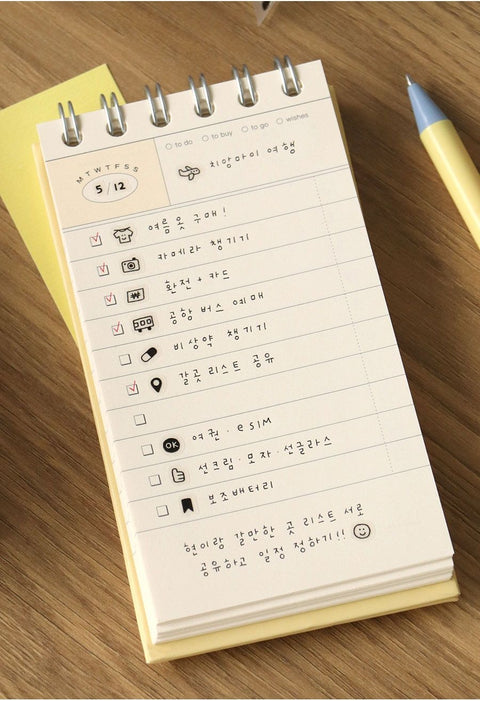 to do to buy to go wishes
MTWTFSS
5 / 12
치앙마이 여행
여름 옷 구매!
카메라 챙기기
환전 + 카드
공항 버스 예매
비상약 챙기기
갈곳 리스트 공유
OK 여권 · eSIM
선크림 · 모자 · 선글라스
보조배터리
현이랑 갈만한 곳 리스트 서로
공유하고 일정 정하기!!